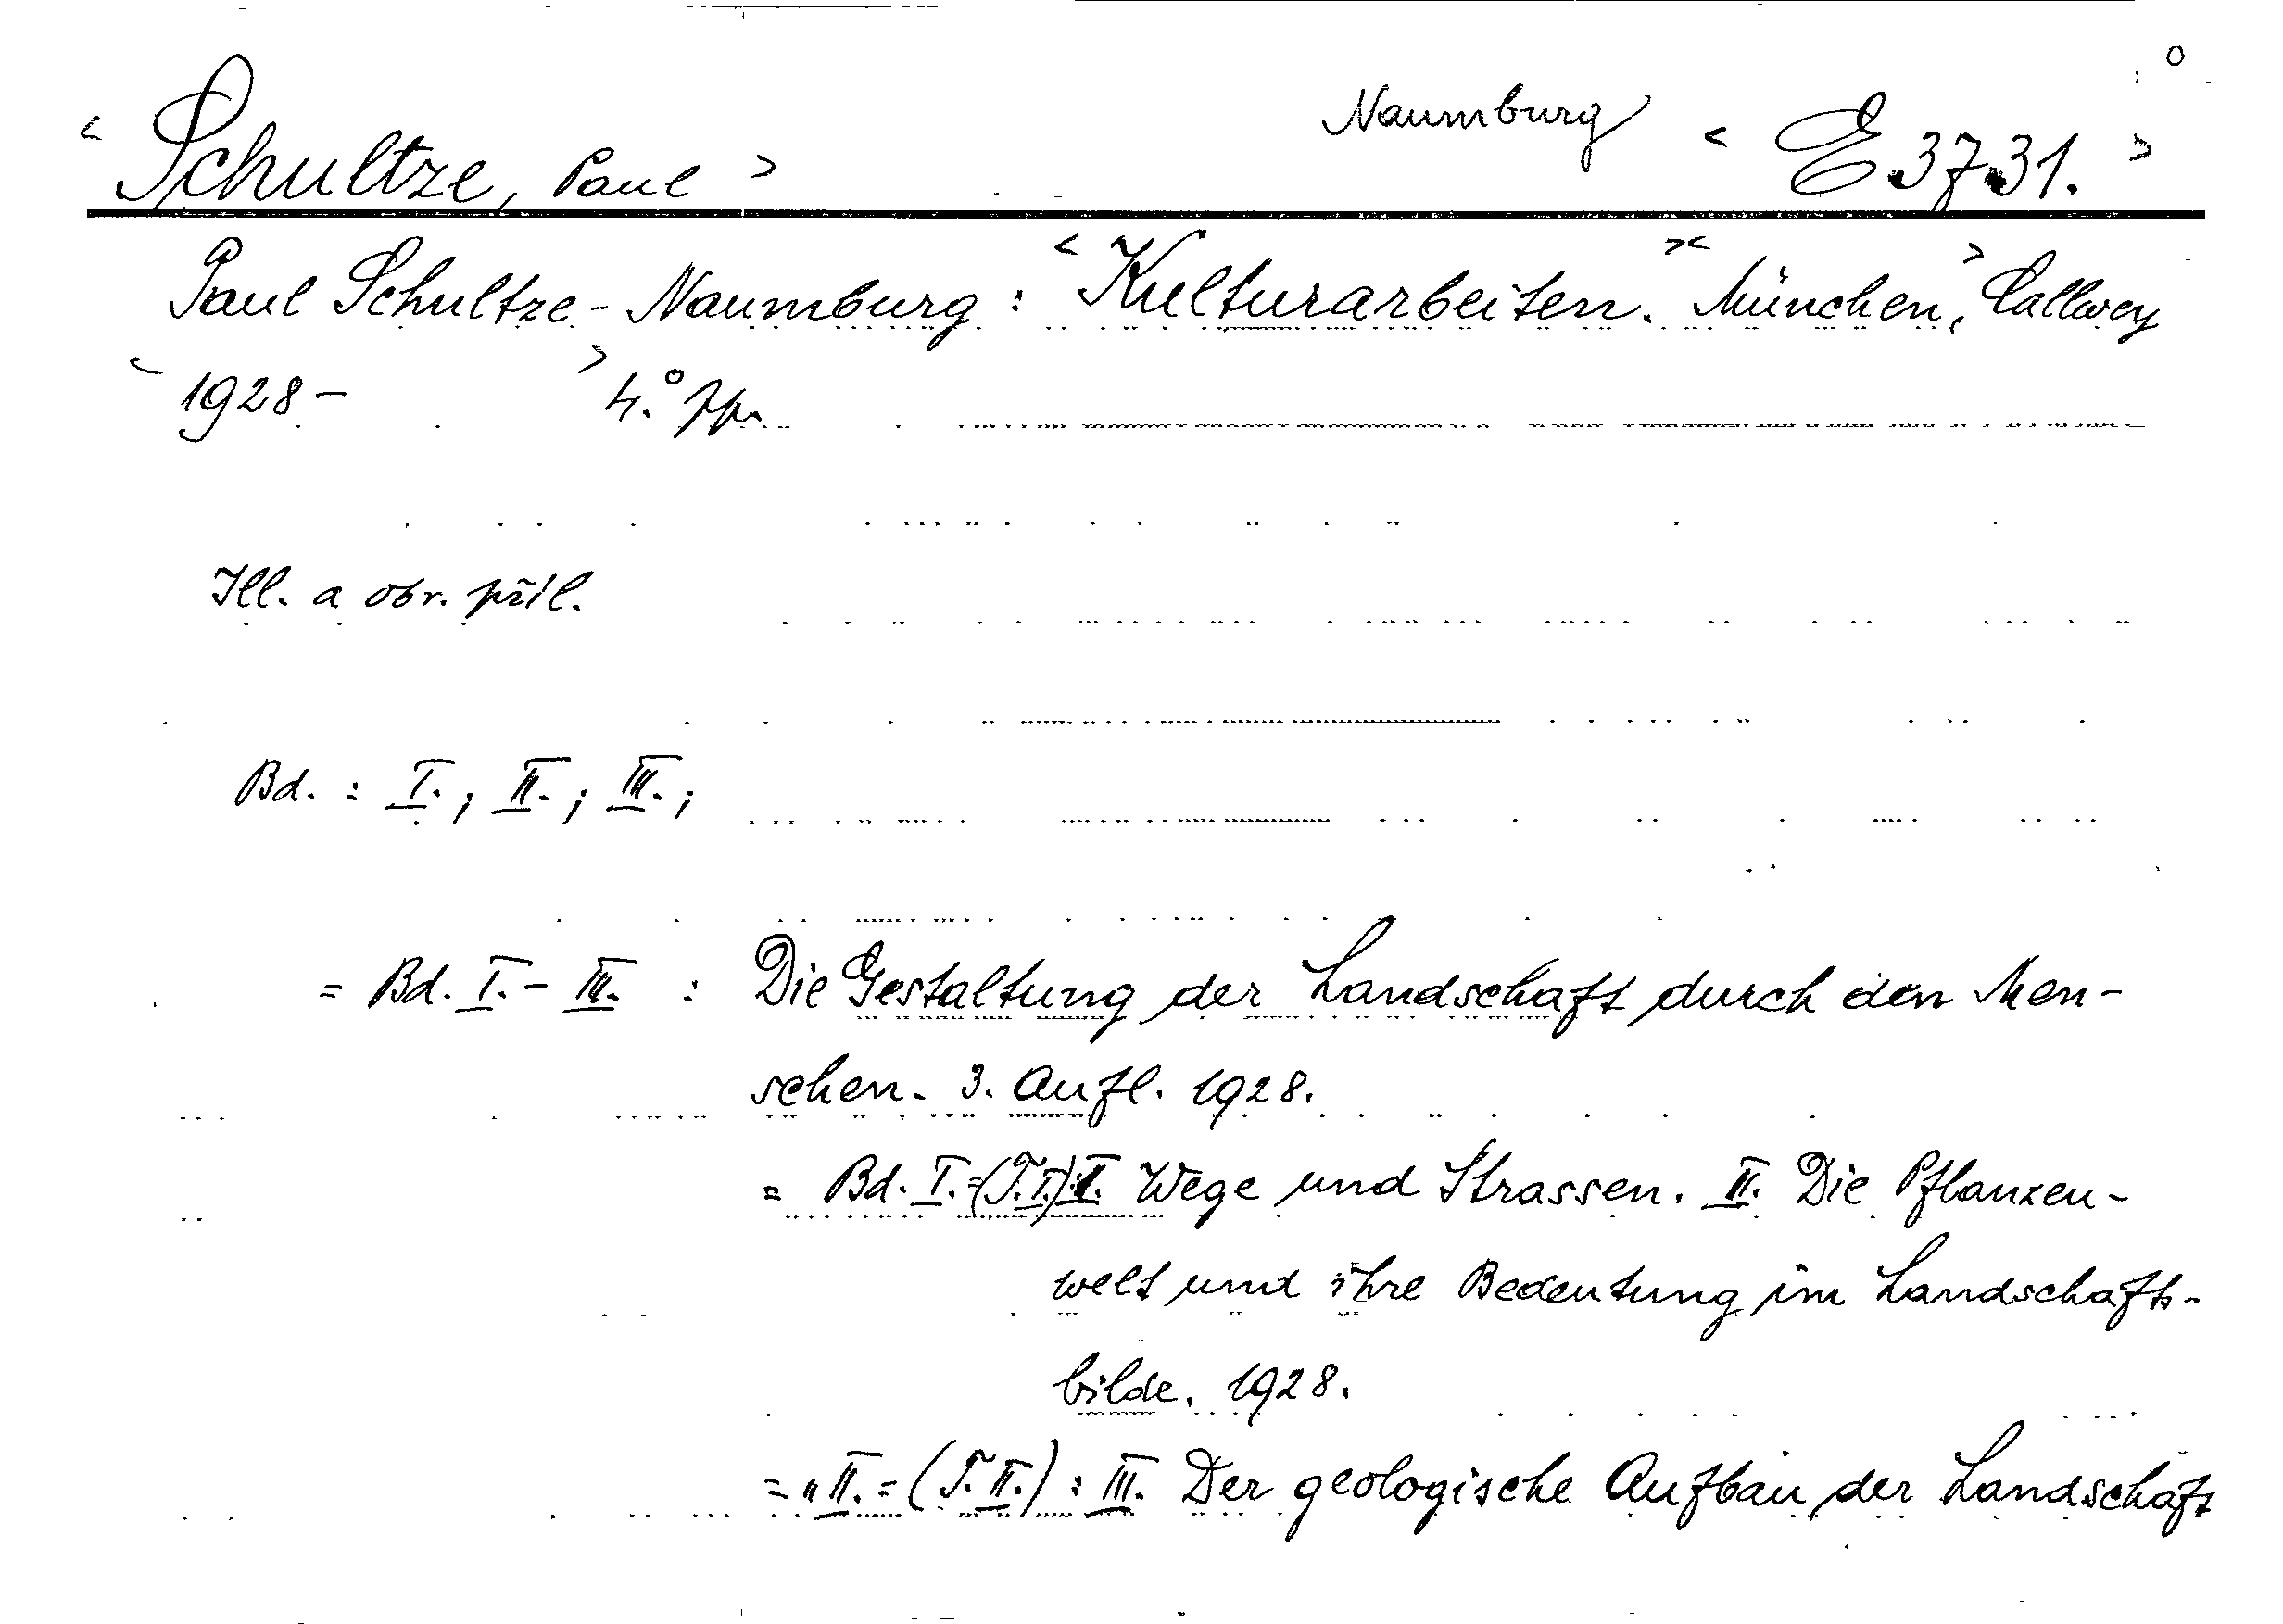 < Schultze, Paul > Naumburg < E.37.31. >
Paul Schultze-Naumburg : < Kulturarbeiten. >< München, > Callwey
< 1928- > 4.° Ppr.
Ill. a obr. příl.
Bd. : I. ; II. ; III. ;
= Bd. I. - III. : Die Gestaltung der Landschaft durch den Men-
schen. 3. Aufl. 1928.
= Bd. I. = (T. I.) : I. Wege und Strassen. II. Die Pflanzen-
welt und ihre Bedeutung im Landschafts-
bilde. 1928.
= " II. = (T. II.) : III. Der geologische Aufbau der Landschaft